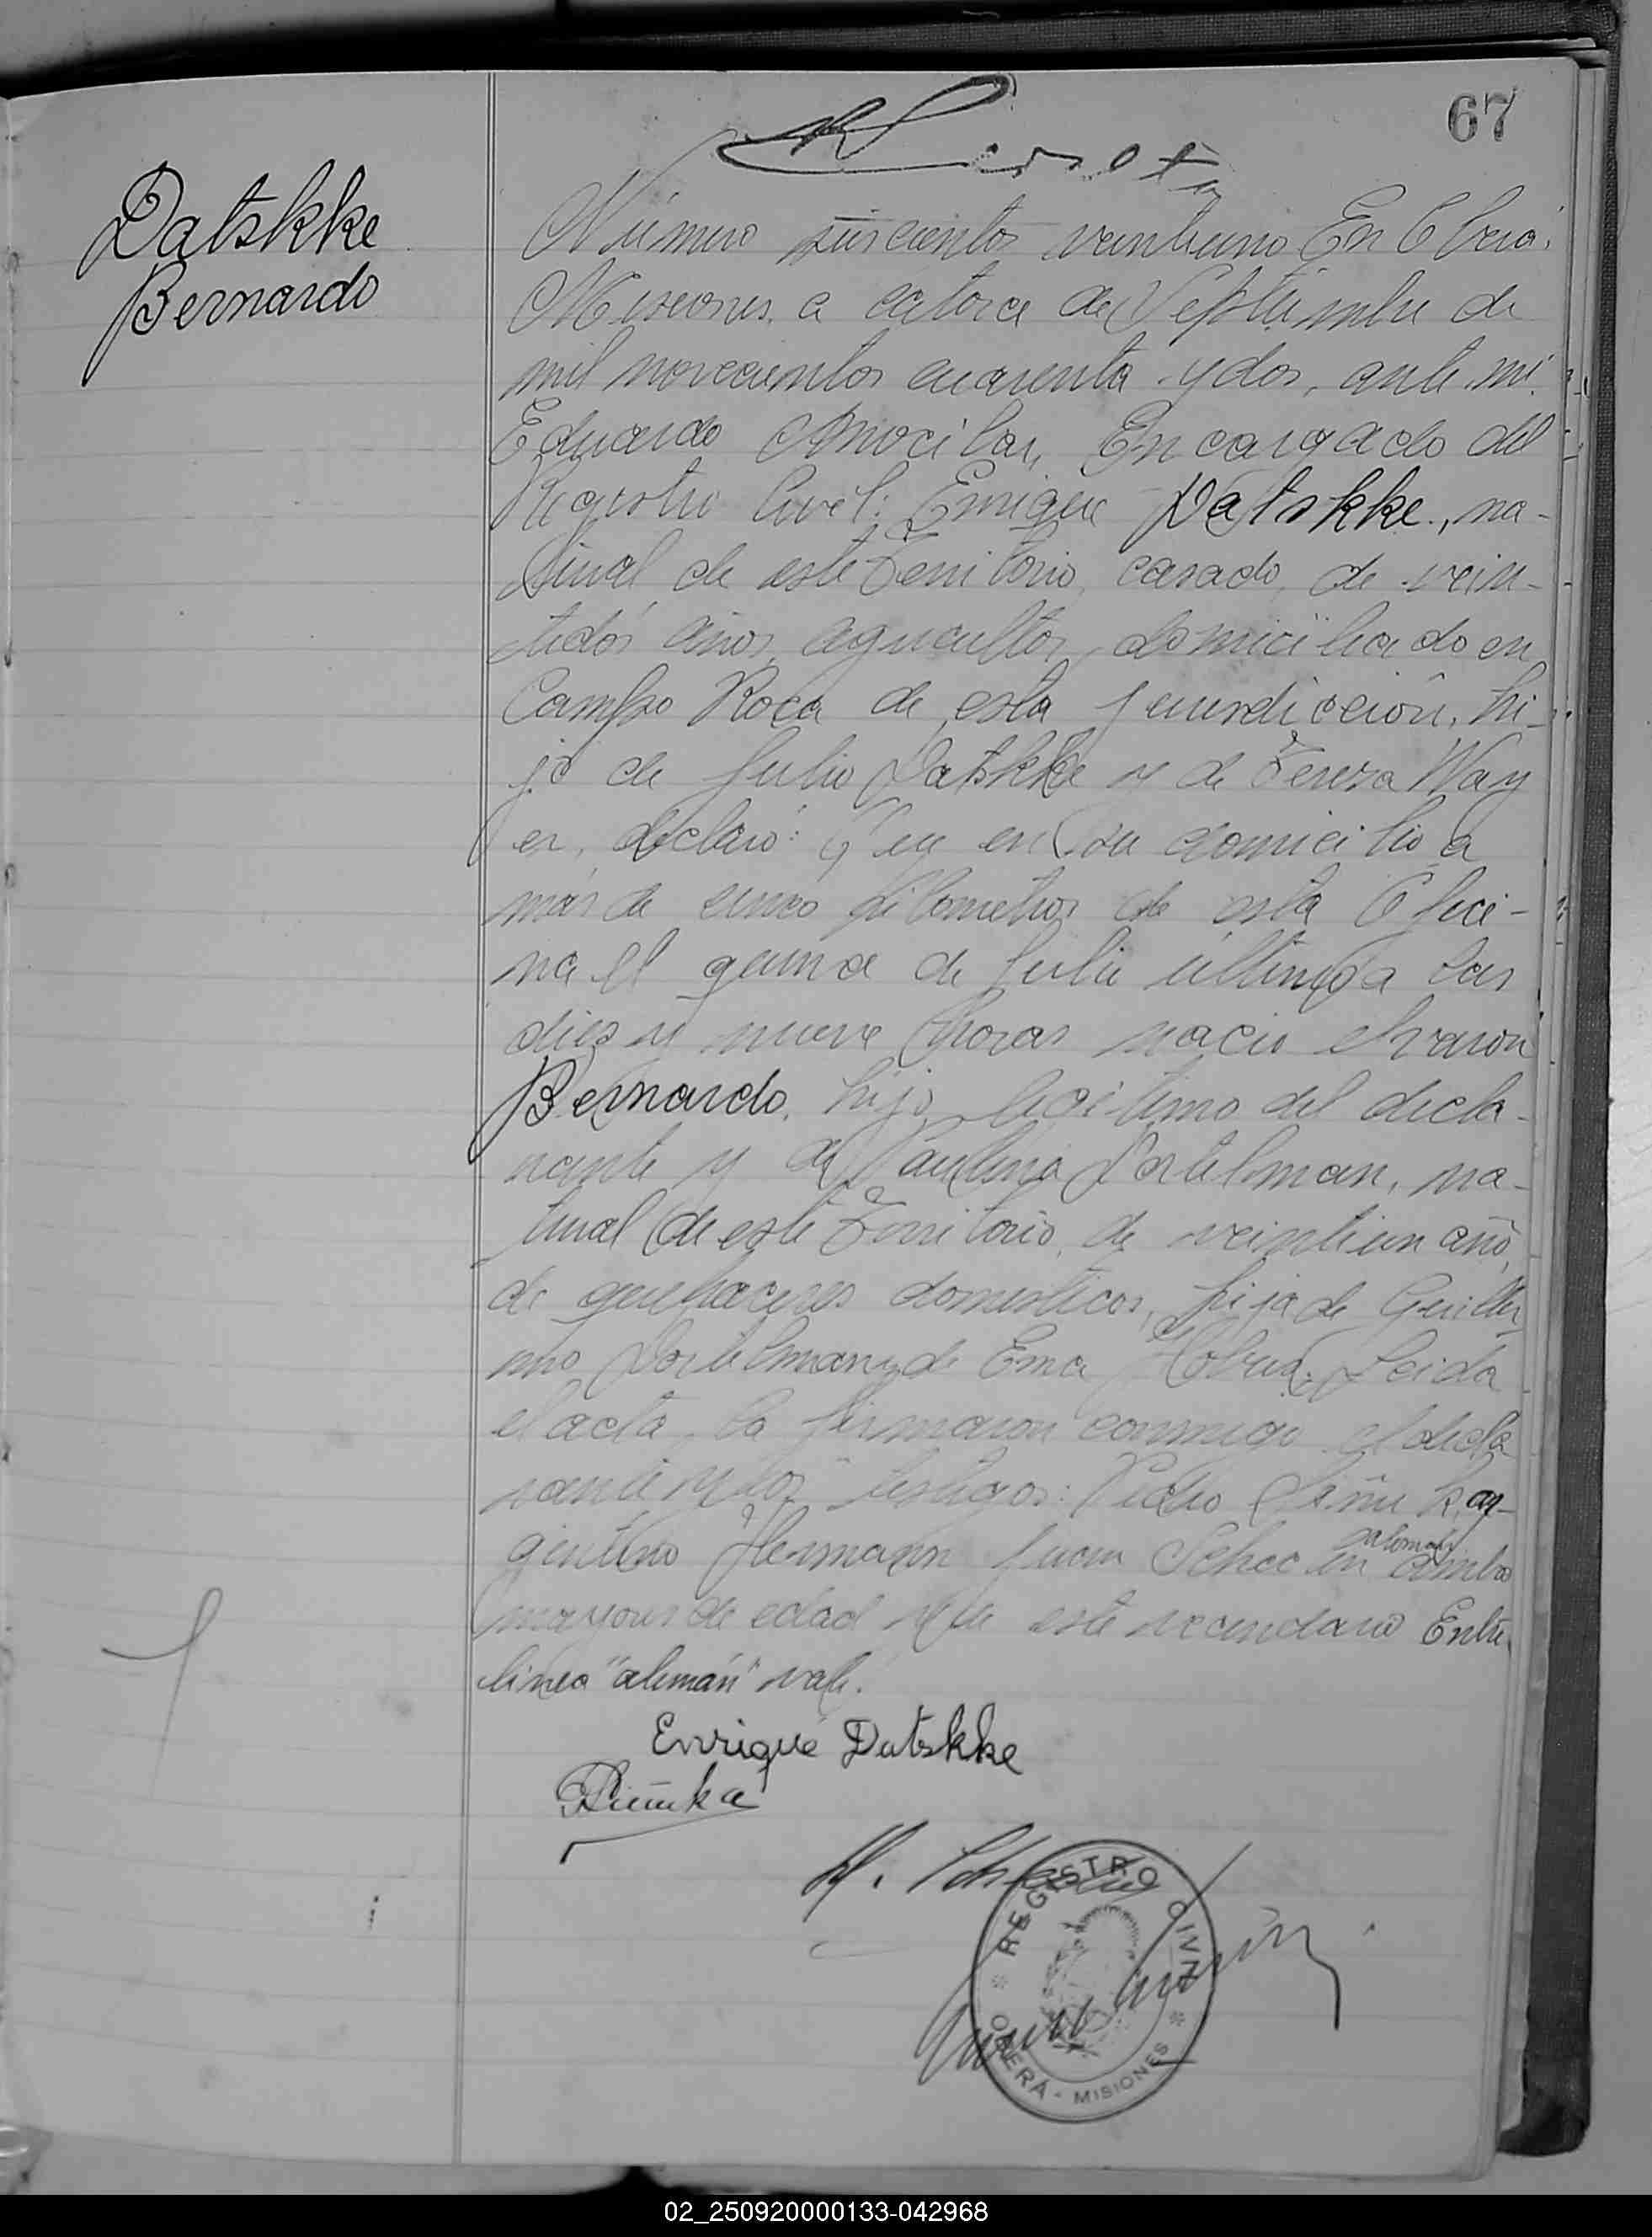 67
Datskke
Bernardo
Número seiscientos veintiuno En Oberá,
Misiones, a catorce de Septiembre de
mil novecientos cuarenta y dos, ante mi
Eduardo Encargado del
Registro Civil: Enrique Datskke, na-
tural de este Territorio, casado, de vein-
tidós años, agricultor, domiciliado en
Campo Roca de esta jurisdicción, hi-
jo de Julio Datskke y de Teresa Way
er, declaró: Que en su domicilio a
más de cinco kilometros de esta Ofici-
na el quince de Julio último a las
diez y nueve horas nació el varon
Bernardo, hijo legítimo del decla-
rante y de Paulina Dortelman, na-
tural de este Territorio, de veintiun año,
de quehaceres domesticos, hija de Guiller
mo Dortelman y de Ema Leida
el acta, la firmaron conmigo el decla
rante y los testigos: Pedro ar-
gentino Hermann Juan alemán ambos
mayores de edad y de este vecindario Entre
linea "alemán" vale.
Enrique Datskke
H.
REGISTRO CIVIL
OBERÁ - MISIONES
02_250920000133-042968